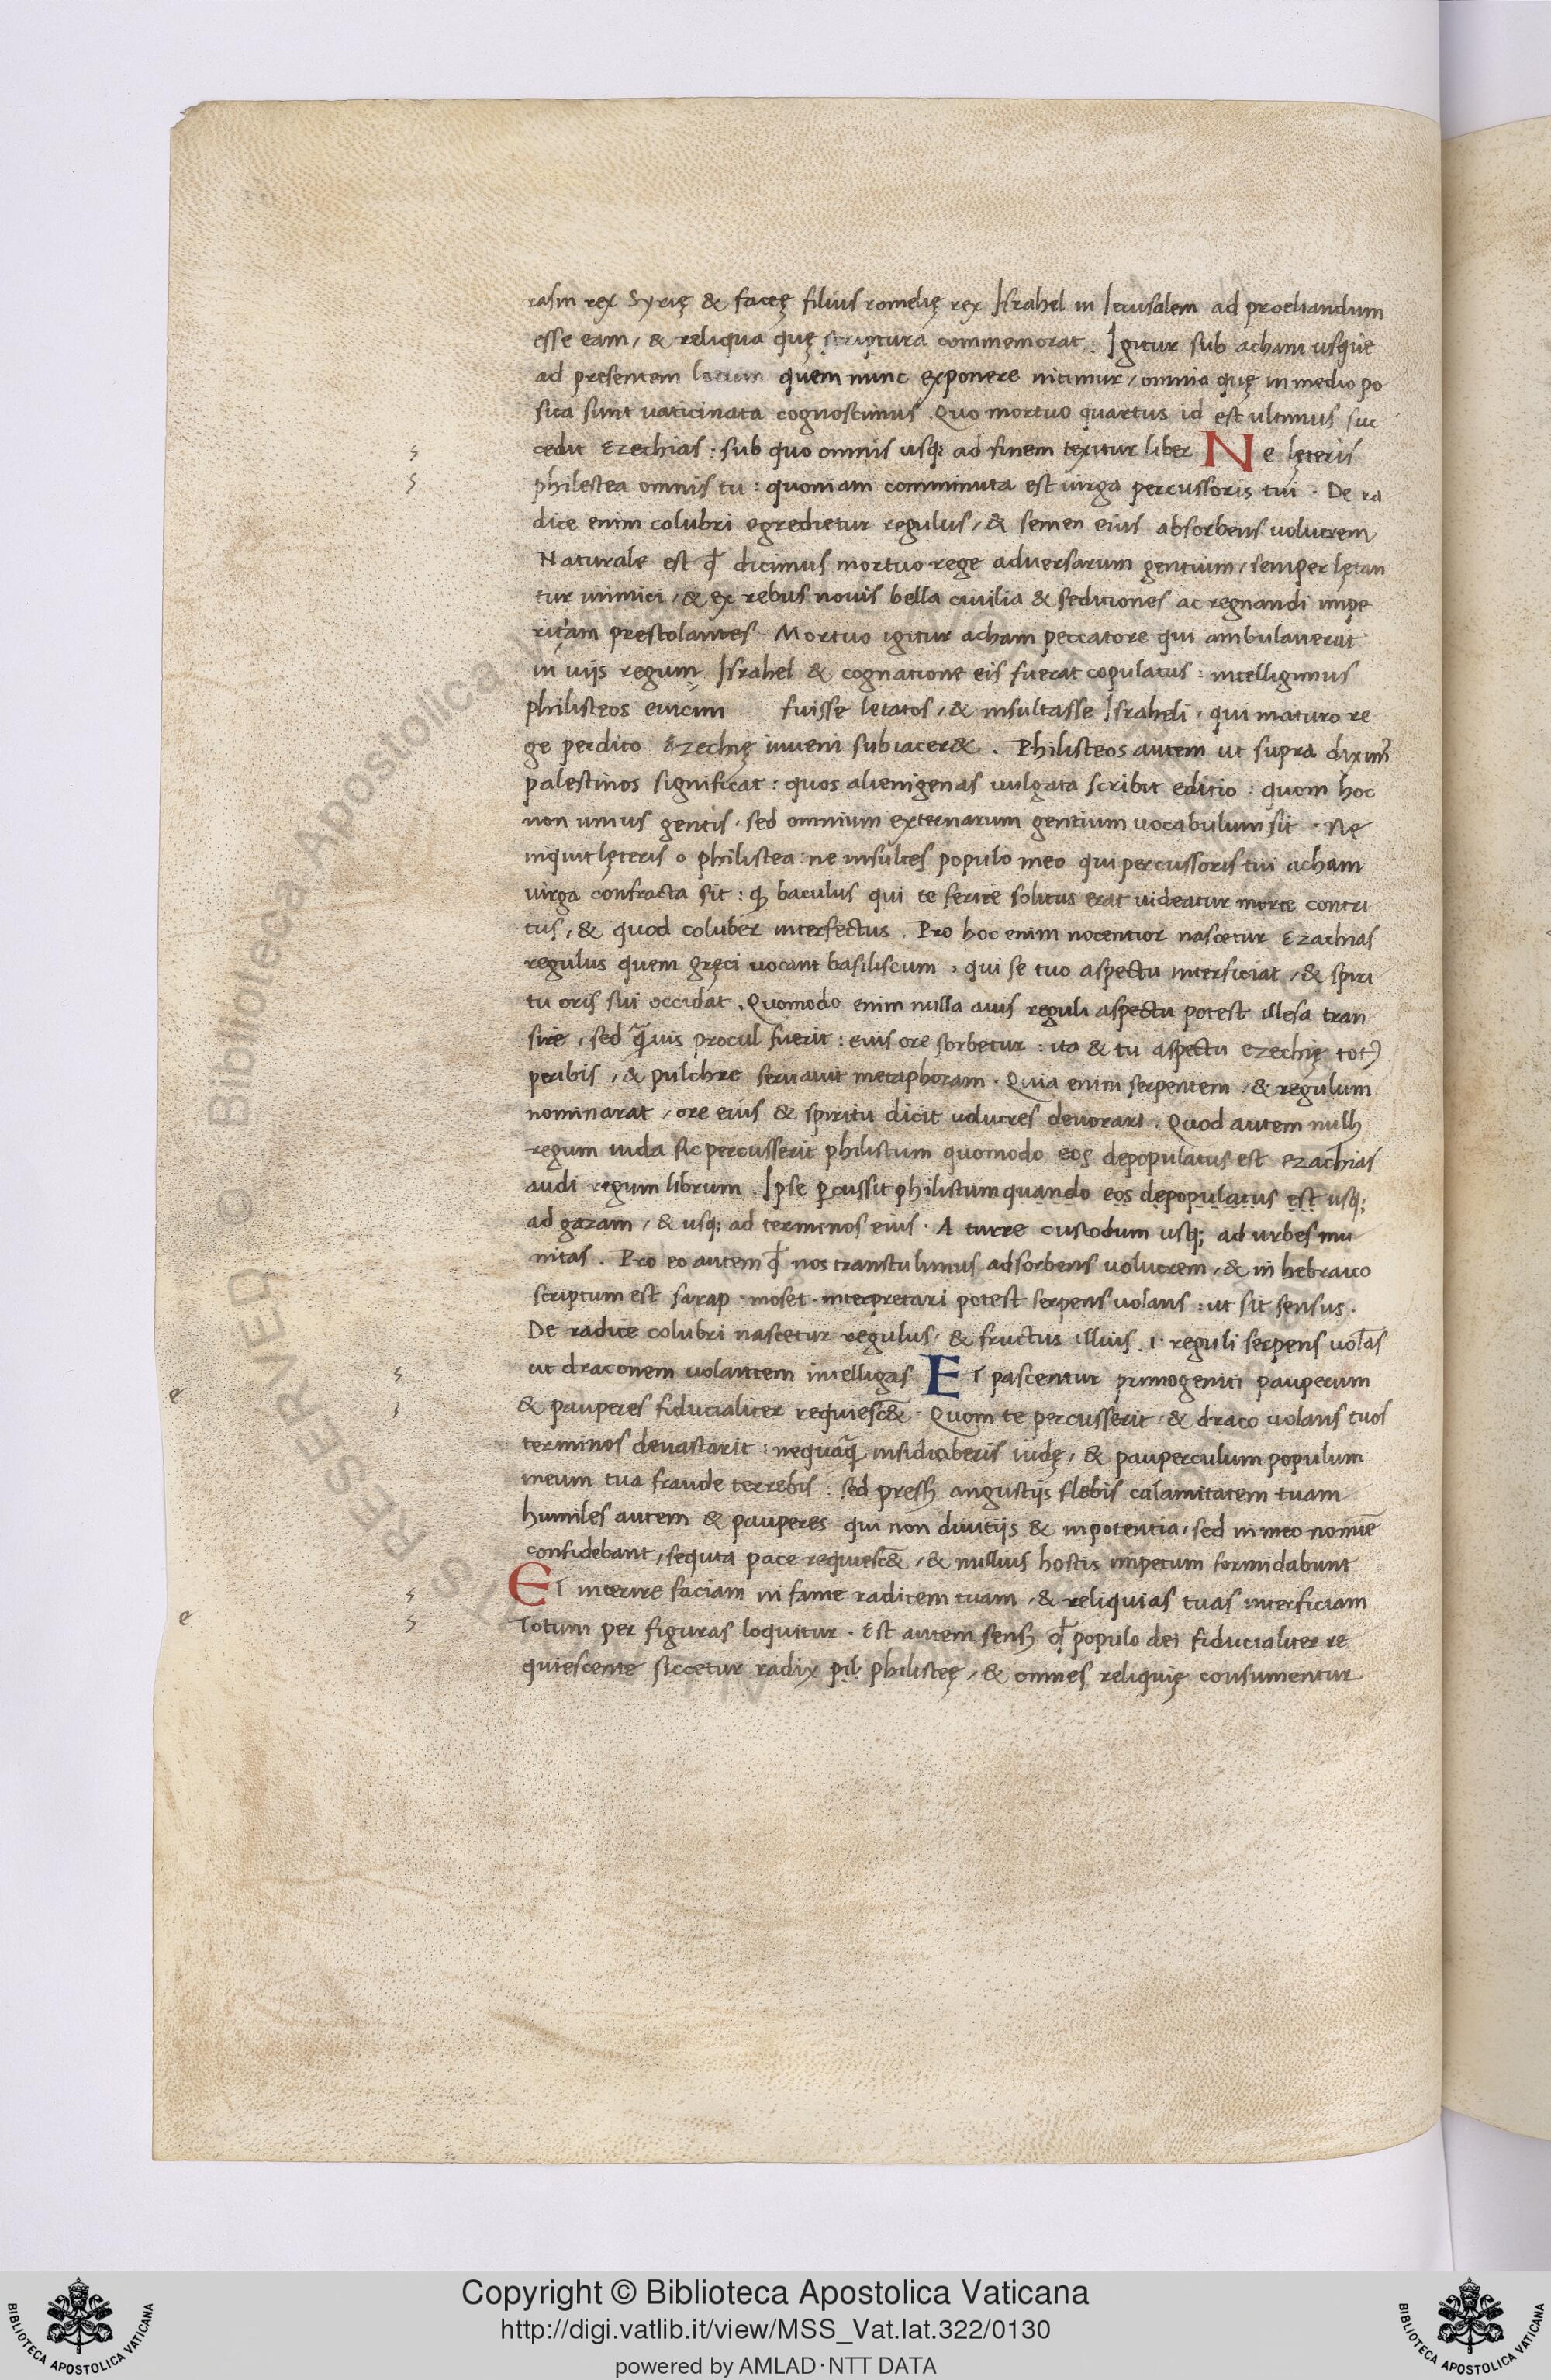 rasin rex Syrię & facęę filius romelię rex Israhel in Ierusalem ad proeliandum
esse eam, & reliqua quę scriptura commemorat. Igitur sub acham usque
ad presentem locum quem nunc exponere nitimur, omnia quę in medio po
sita sunt vaticinata cognoscimus. Quo mortuo quartus id est ultimus suc
cedit Ezechias : sub quo omnis usq; ad finem texitur liber Ne lęteris
philestea omnis tu : quoniam comminuta est virga percussoris tui . De ra
dice enim colubri egredietur regulus, & semen eius absorbens volucrem
Naturale est qđ dicimus mortuo rege adversarum gentium, semper lętan
tur inimici, & ex rebus novis bella civilia & seditiones ac regnandi impe
ritiam prestolantes. Mortuo igitur acham peccatore qui ambulaverat
in viis regum Israhel & cognatione eis fuerat copulatus : intelligimus
philisteos fuisse letatos, & insultasse Israheli, qui maturo re
ge perdito Ezechię iuveni subiacer&. Philisteos autem ut supra diximꝰ
palestinos significat : quos alienigenas vulgata scribit editio : quom hoc
non unius gentis, sed omnium externarum gentium vocabulum sit . Ne
inquit lęteris o philistea : ne insultes populo meo qui percussoris tui acham
virga confracta sit : qđ baculus qui te ferire solitus erat videatur morte contri
tus, & quod coluber interfectus. Pro hoc enim nocentior nascetur Ezachias
regulus quem gręci vocant basiliscum, qui se tuo aspectu interficiat, & spiri
tu oris sui occidat. Quomodo enim nulla avis reguli aspectu potest illesa tran
sire, sed q̃vis procul fuerit : eius ore sorbetur : ita & tu aspectu ezechię tot
peribis, & pulchre servavit metaphoram. Quia enim serpentem, & regulum
nominarat, ore eius & spiritu dicit volucres devorari. Quod autem nullꝰ
regum iuda sic percusserit philistum quomodo eos depopulatus est ezachias
audi regum librum. Ipse ꝑcussit philistum quando eos depopulatus est usq;
ad gazam, & usq; ad terminos eius. A turre custodum usq; ad urbes mu
nitas. Pro eo autem qđ nos transtulimus adsorbens volucrem, & in hebraico
scriptum est sarap moset interpretari potest serpens volans : ut sit sensus.
De radice colubri nascetur regulus, & fructus illius .i. reguli serpens volãs
ut draconem volantem intelligas ET pascentur primogeniti pauperum
& pauperes fiducialiter requiesc&̃. Quom te percusserit & draco volans tuos
terminos devastarit : nequaq̃ insidiaberis iudę, & pauperculum populum
meum tua fraude terrebis : sed pressꝰ angustiis flebis calamitatem tuam
humiles autem & pauperes qui non divitiis & inpotentia, sed in meo nomĩe
confidebant, sequta pace requiesc&̃, & nullius hostis impetum formidabunt
ET interire faciam in fame radicem tuam, & reliquias tuas interficiam
Totum per figuras loquitur. Est autem sensꝰ qđ populo dei fiducialiter re
quiescente siccetur radix pił philisteę, & omnes reliquię consumentur
s
s
s
s
s
s
e
e
© Biblioteca Apostolica Vaticana
Copyright © Biblioteca Apostolica Vaticana
http://digi.vatlib.it/view/MSS_Vat.lat.322/0130
powered by AMLAD·NTT DATA
BIBLIOTECA APOSTOLICA VATICANA
BIBLIOTECA APOSTOLICA VATICANA